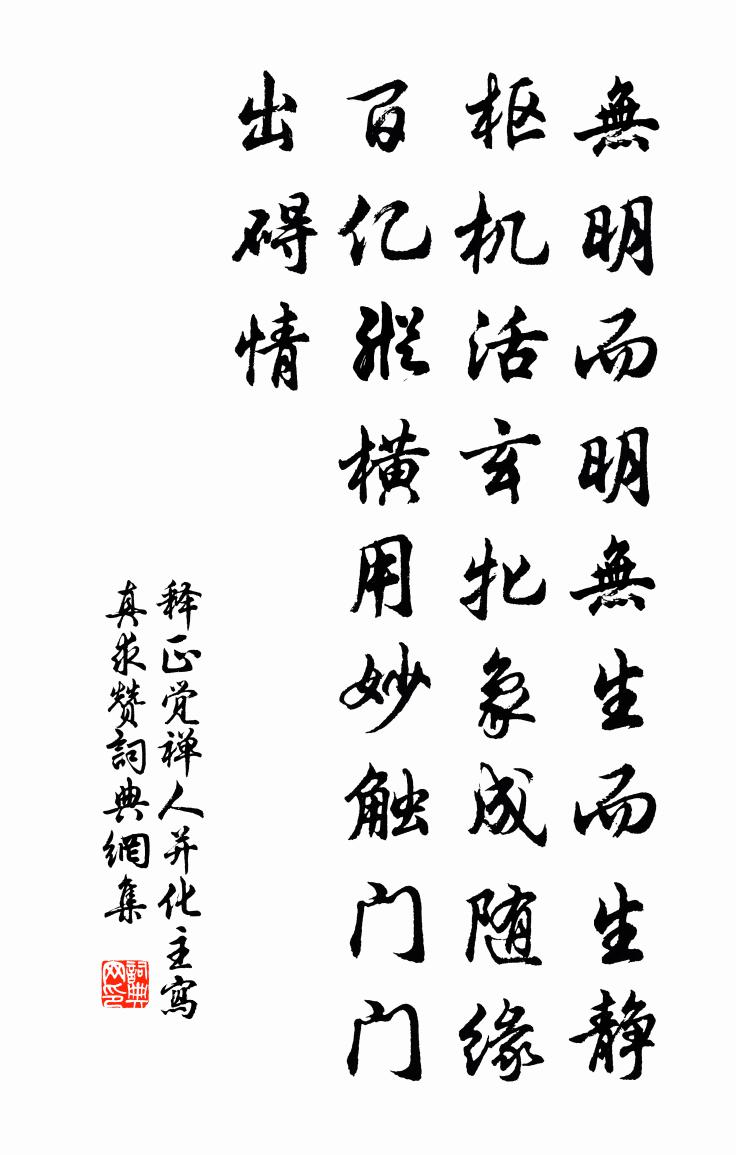 無明而明無生而生静
枢机活玄牝象成随缘
百亿縱横用妙触门门
出碍情
释正觉禅人并化主寫
真求赞詞典網集
詞典网印